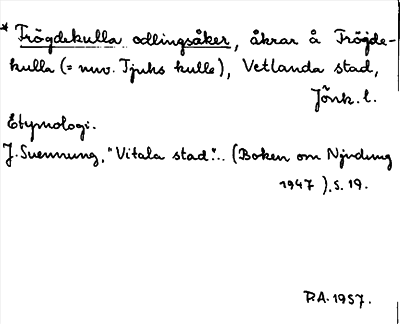 * Frögdekulla odlingsåker, åkrar å Frögde-
kulla (= nuv. Tjuhs kulle), Vetlanda stad,
Jönk. l.
Etymologi.
J. Svennung, "Vitala stad".. (Boken om Njudung
1947), s. 19.
P.A. 1957.